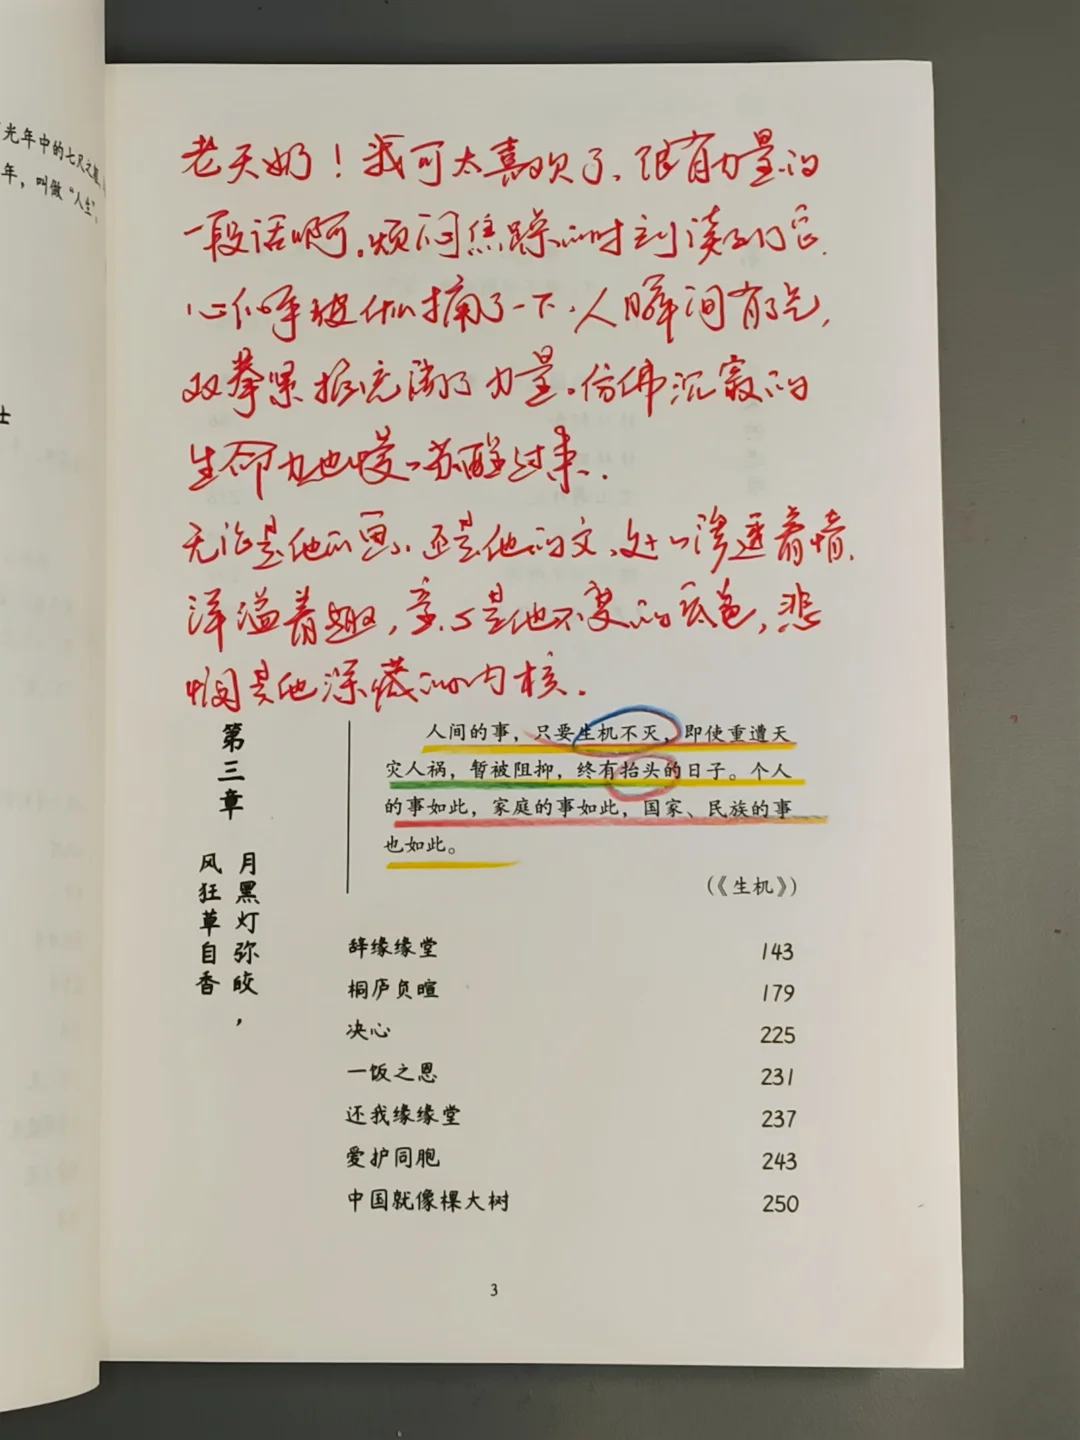 光年中的七尺之
年，叫做“人生”，
士
老天奶！我可太喜欢了、很有力量的
一段话啊。烦闷焦躁的时刻读到它.
心似乎被什么捅了一下、人瞬间有了光，
双拳紧握充满了力量。仿佛沉寂的
生命力也慢慢苏醒过来.
无论是他的画、还是他的文、处处渗透着情.
洋溢着趣，童真是他不变的底色，悲
悯是他深藏的内核.
第三章
月黑灯弥皎，
风狂草自香
人间的事，只要生机不灭，即使重遭天
灾人祸，暂被阻抑，终有抬头的日子。个人
的事如此，家庭的事如此，国家、民族的事
也如此。
（《生机》）
辞缘缘堂 143
桐庐负暄 179
决心 225
一饭之恩 231
还我缘缘堂 237
爱护同胞 243
中国就像棵大树 250
3